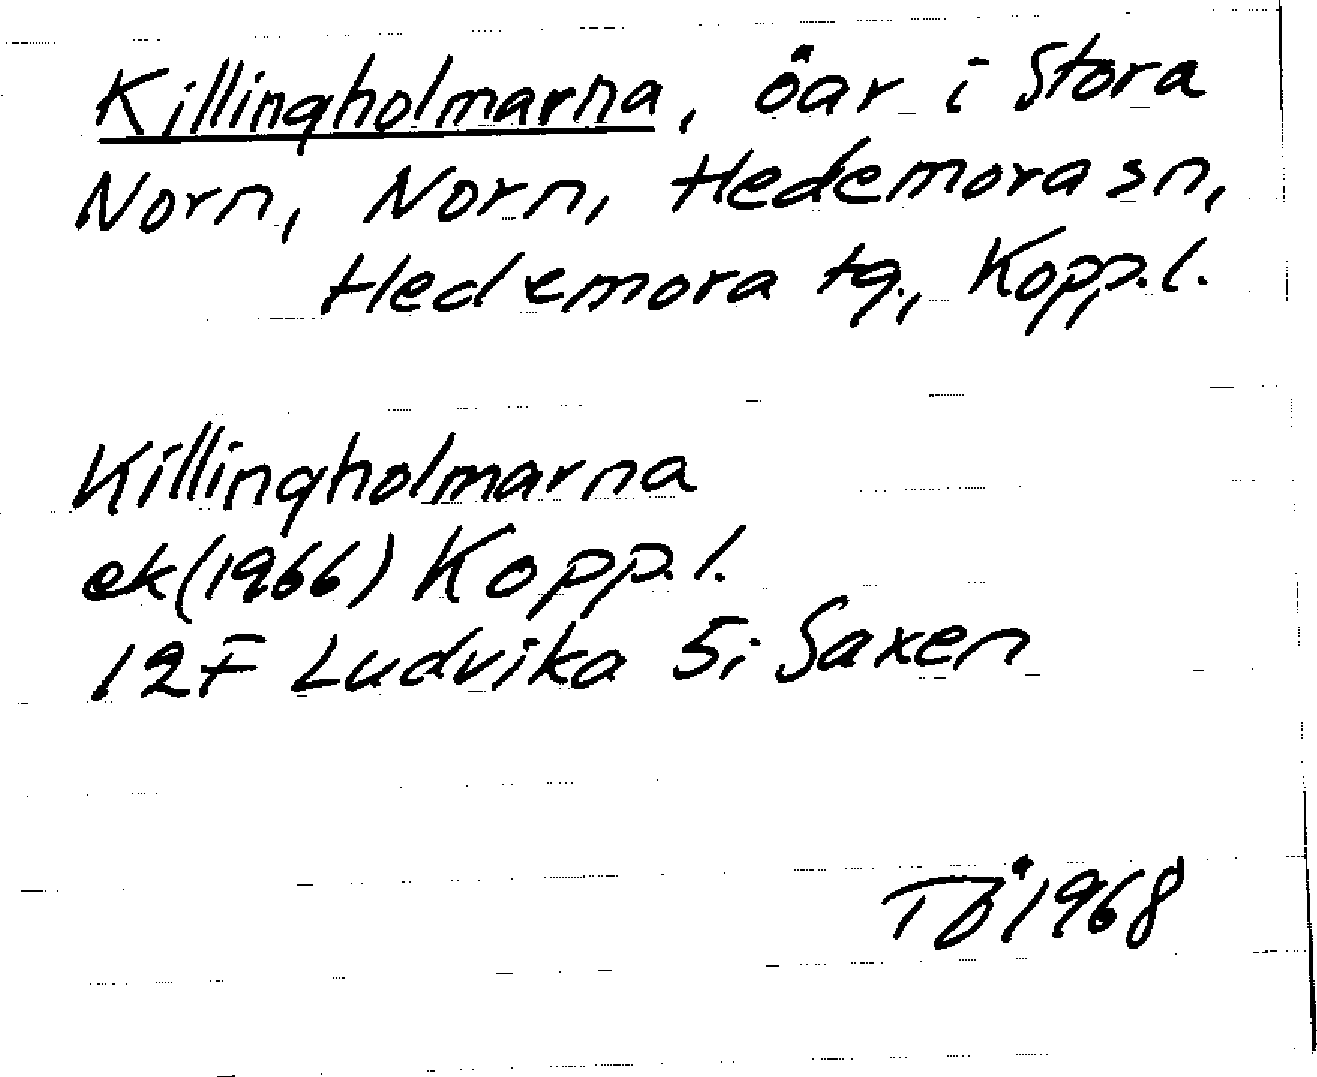 Killingholmarna, öar i Stora
Norn, Norn, Hedemora sn,
Hedemora tg., Kopp.l.
Killingholmarna
ek(1966) Kopp.l.
12F Ludvika 5i Saxen
1968